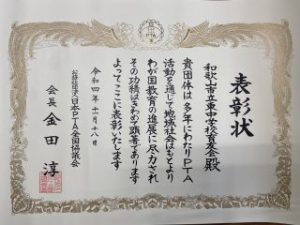 表彰状
和歌山市立東中学校育友会殿
貴団体は多年にわたりPTA
活動を通して地域社会はもとより
わが国教育の進展に尽力され
その功績はきわめて顕著であります
よってここに表彰いたします
令和四年十一月十八日
公益社団法人日本PTA全国協議会
会長 金田 淳